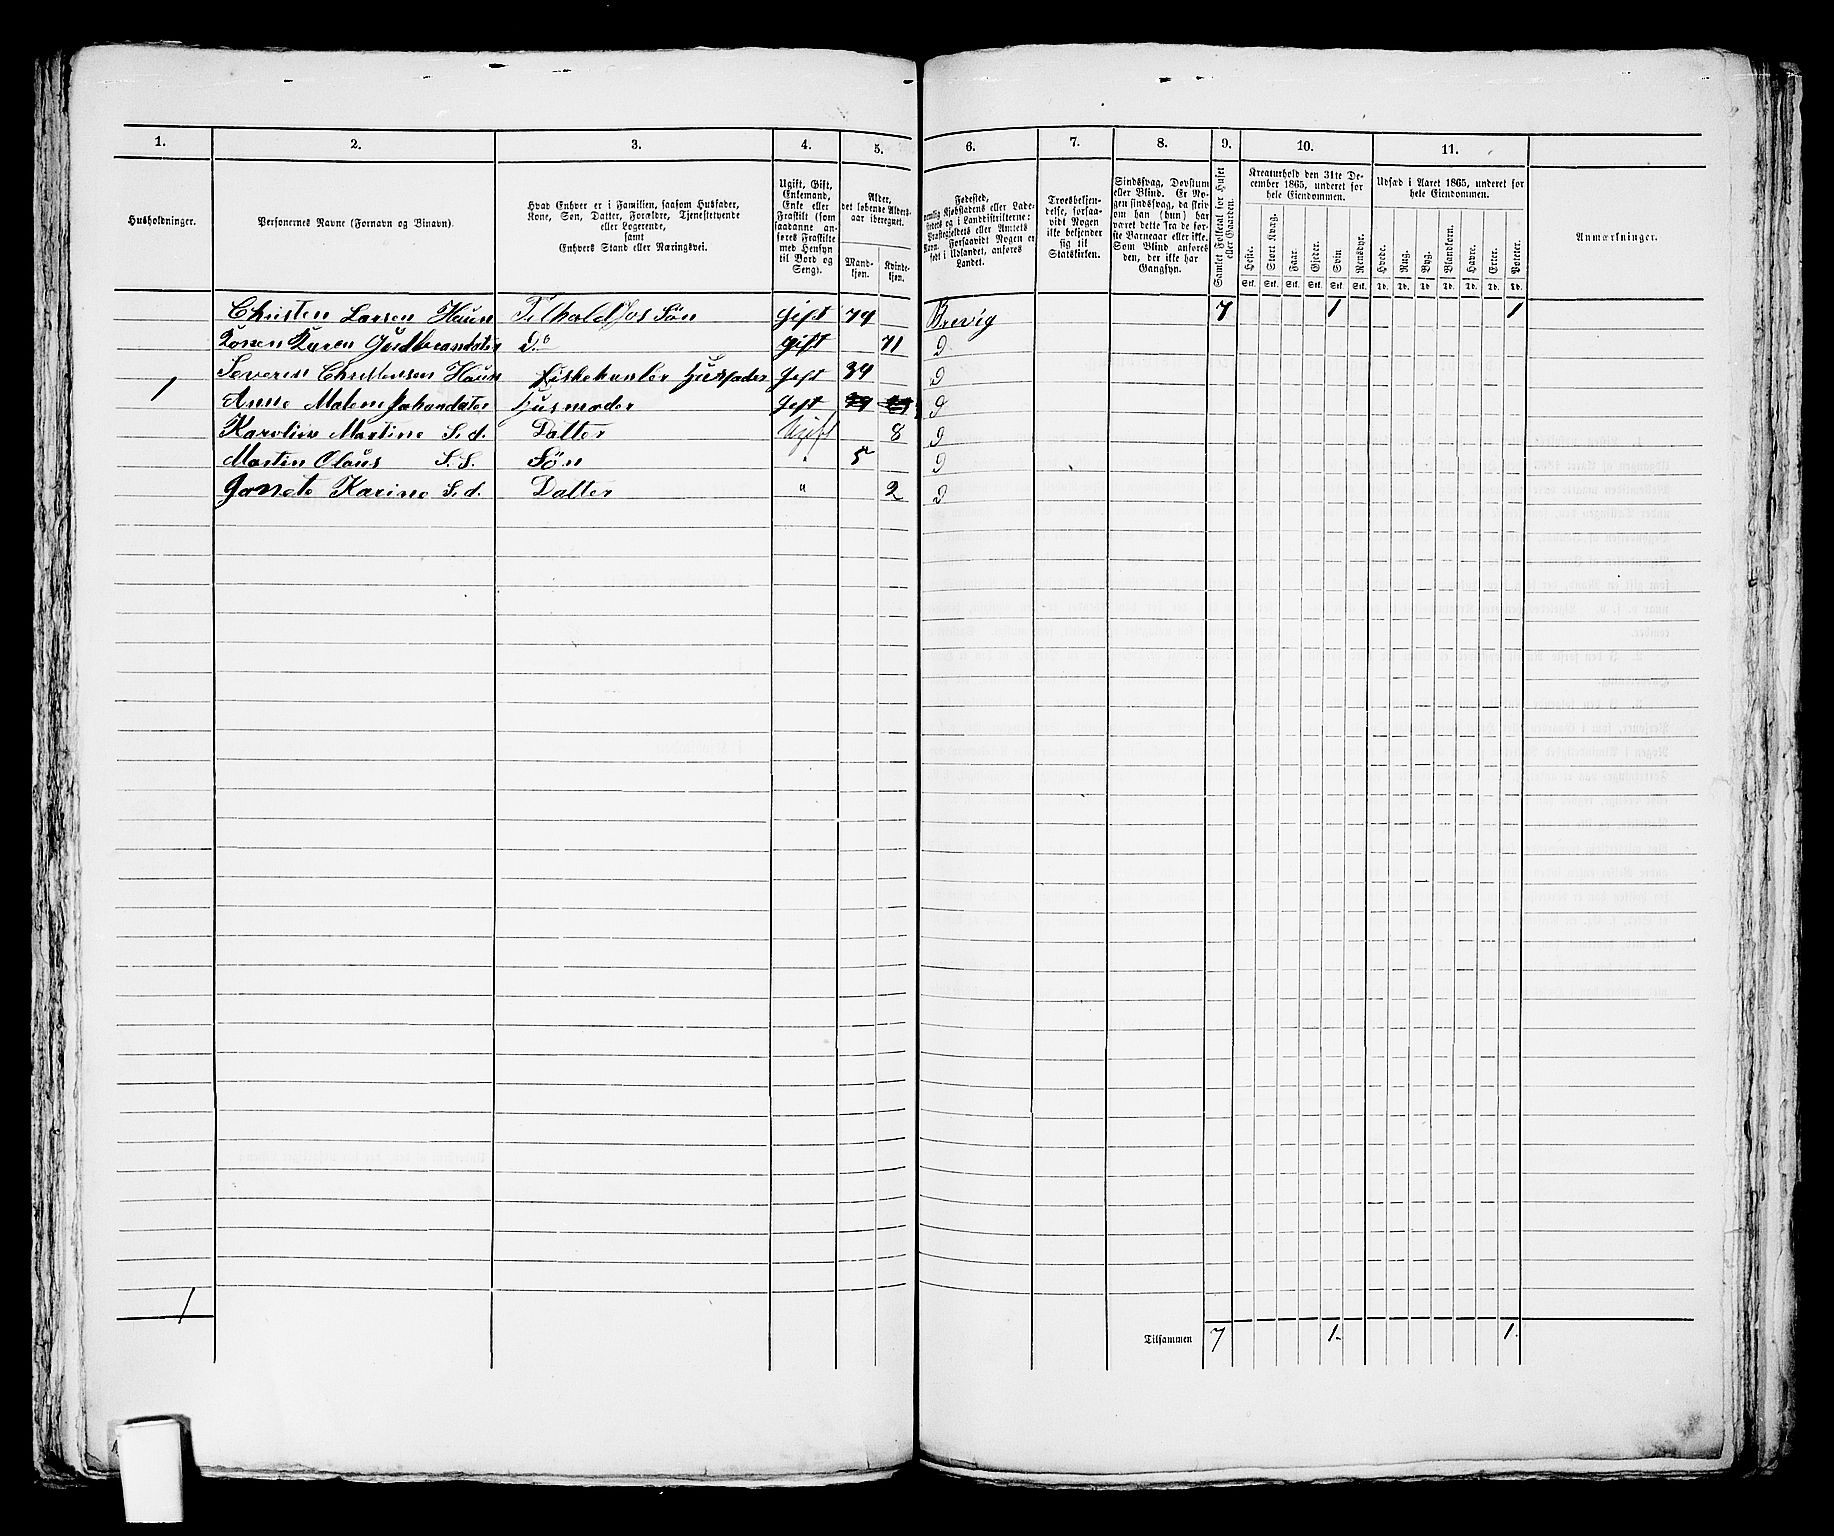 1. 2. 3. 4. 5. 6. 7. 8. 9. 10. 11.
Husholdninger.
Personernes Navne (Fornavn og Binavn).
Hvad Enhver er i Familien, saasom Husfader,
Kone, Søn, Datter, Forældre, Tjenestetyende
eller Logerende,
samt
Enhvers Stand eller Næringsvei.
Ugift, Gift,
Enkemand,
Enke eller
Fraskilt (som
saadanne an-
føres Fraskilte
med Hensyn
til Bord og
Seng).
Alder,
det løbende Alders-
aar iberegnet.
Mand-
kjøn.
Kvinde-
kjøn.
Fødested,
nemlig Kjøbstadens eller Lade-
stedets og i Landdistrikterne:
Præstegjeldets eller Amtets
Navn. Forsaavidt Nogen er
født i Udlandet, anføres
Landet.
Troesbekjen-
delse, forsaa-
vidt Nogen
ikke bekjender
sig til
Statskirken.
Sindssvag, Døvstum
eller Blind. Er No-
gen sindssvag, da skriv
om han (hun) har
været dette fra de før-
ste Barneaar eller ikke.
Som Blind anføres
den, der ikke har
Gangsyn.
Samlet Folketal for Huset
eller Gaarden.
Kreaturhold den 31te De-
cember 1865, underet for
hele Eiendommen.
Heste. Stort Kvæg. Faar. Gjeder. Svin Rensdyr.
Stk. Stk. Stk. Stk. Stk Stk.
Udsæd i Aaret 1865, underet for
hele Eiendommen.
Hvede. Rug. Byg. Blandkorn. Havre. Erter. Poteter.
Td. Td. Td Td. Td. Td. Td.
Anmærkninger.
Christen Larsen Gift 74 Brevig 7 1 1
Karen Gudbrandsdater Do gift 71 D
Severin Christensen Fiskehandler Husfader Gift 34 D
1 Anne Malene Johansdater Husmoder Gift D
Karoline Martine S. d. Datter Ugift 8 D
Martin Olaus S. S. Søn " 5 D
Karine S. d. Datter " 2 D
1
Tilsammen 7 1 1